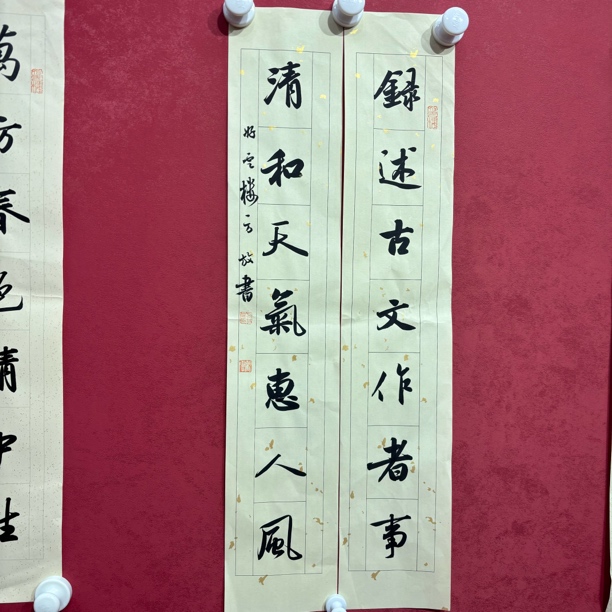 録述古文作者事
清和天氣惠人風
好雲樓方放書
萬方春色晴中生